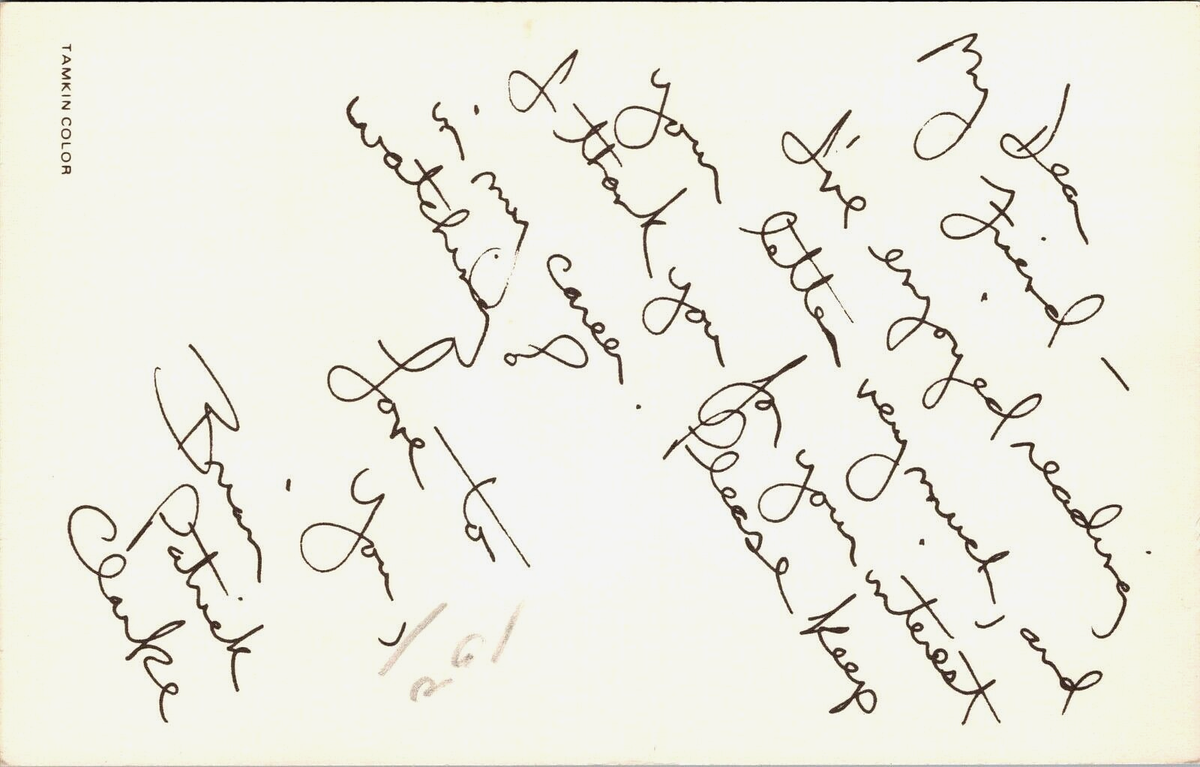 My Dear Friend —
I've enjoyed reading
your letter very much, and
I thank you for your interest
in my career. Please keep
watching!
Love to
you,
Brian
Patrick
Clarke
TAMKIN COLOR